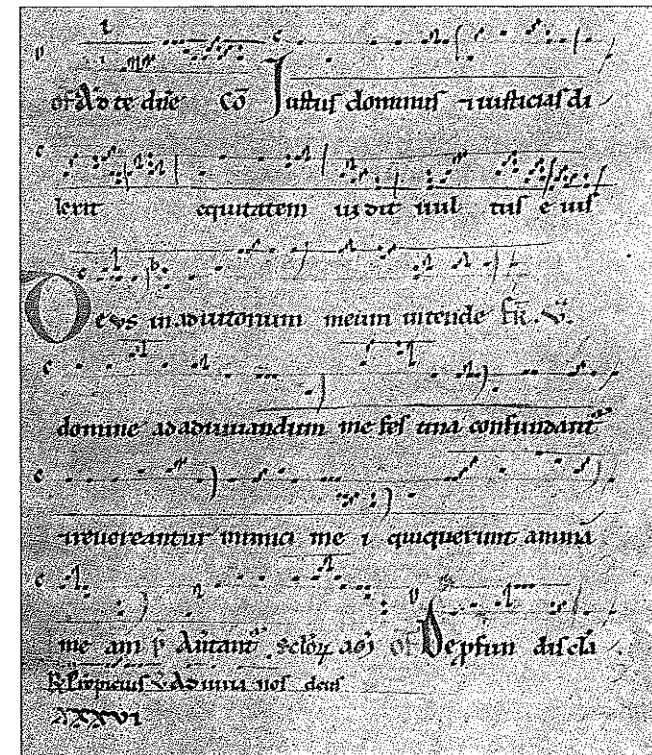 of Ad te dñe Cō Iustus dominus ⁊ iusticias di
lexit equitatem uidit uul tus e ius
Deus in adiutorium meum intende
domine ad adiuuandum me fes tina confundant
⁊reuereantur inimici me i qui querunt anima
me am of De profun dis cla
Propicius Adiuua nos deus
XXVI